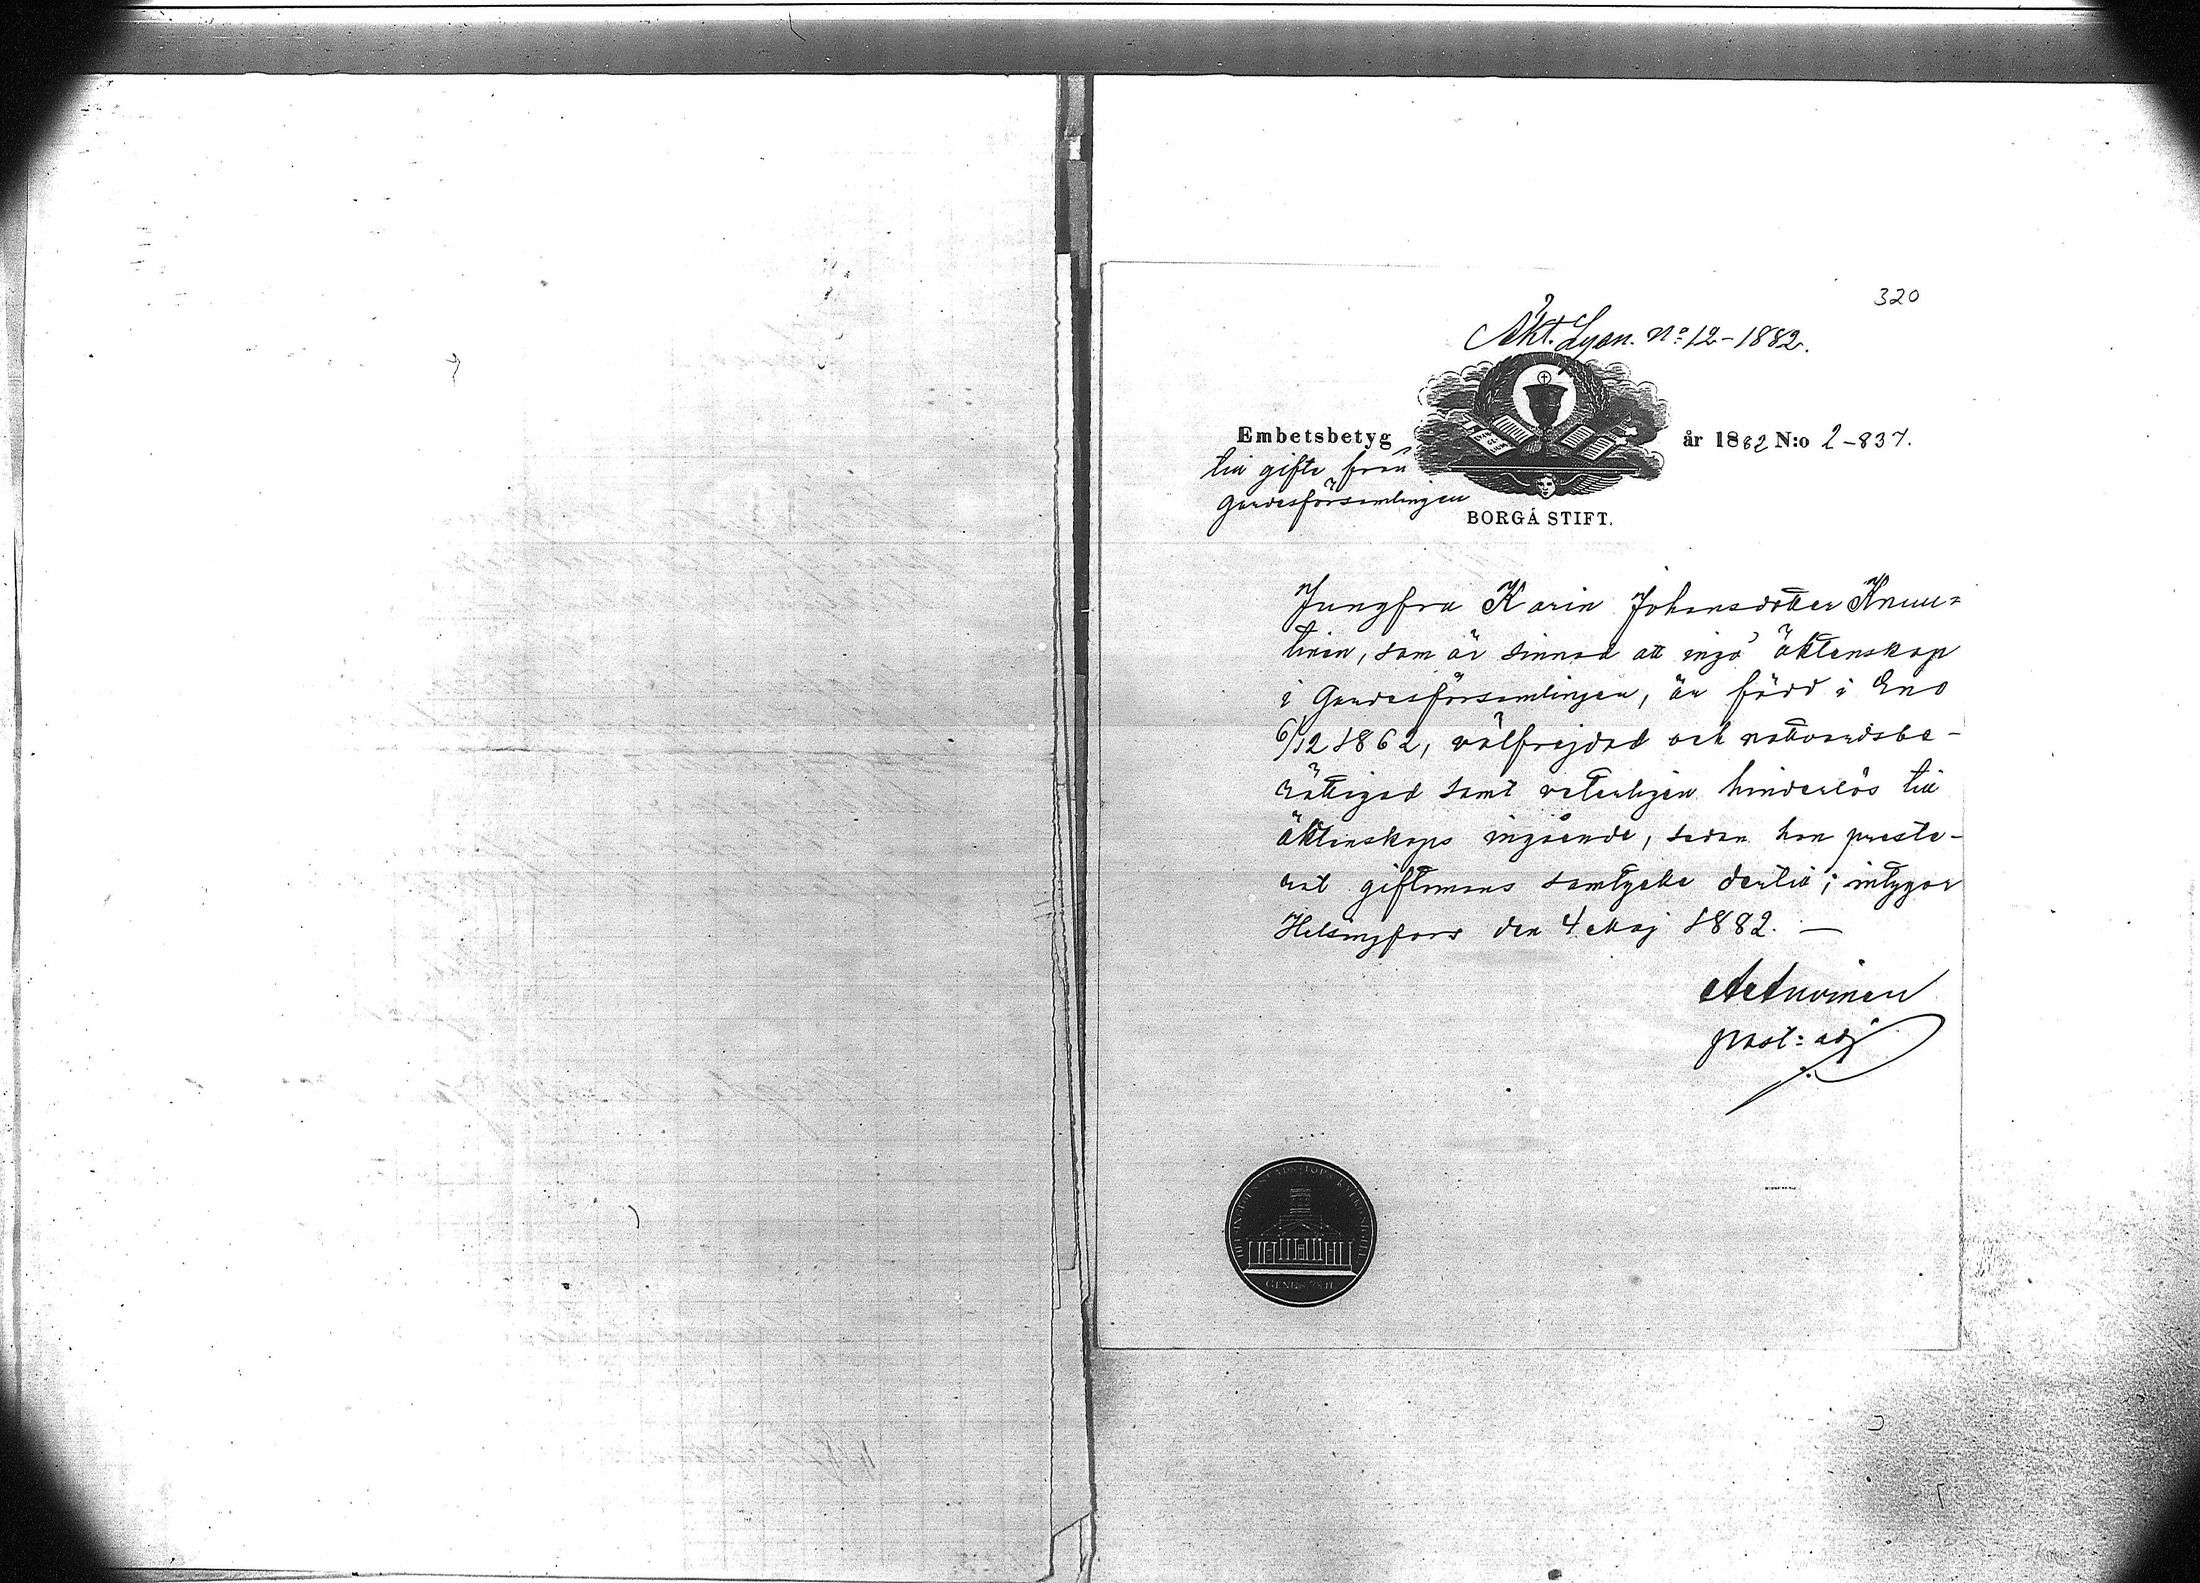 320
Äkt. Lysn. No 12-1882.
Embetsbetyg år 1882 N:o 2-837.
till gifte från
gardesförsamlingen
BORGÅ STIFT.
Jungfru Karin Johansdotter Knuu=
tinen, som är sinnad att ingå äktenskap
i Gardesförsamlingen, är född i Eno
6/12 1862, välfrejdad och nattvardsbe-
rättigad samt veterligen hinderlös till
äktenskaps ingående, sedan hon preste-
rat giftomans samtycke dertill; intygar
Helsingfors den 4 Maj 1882. —
past: adj